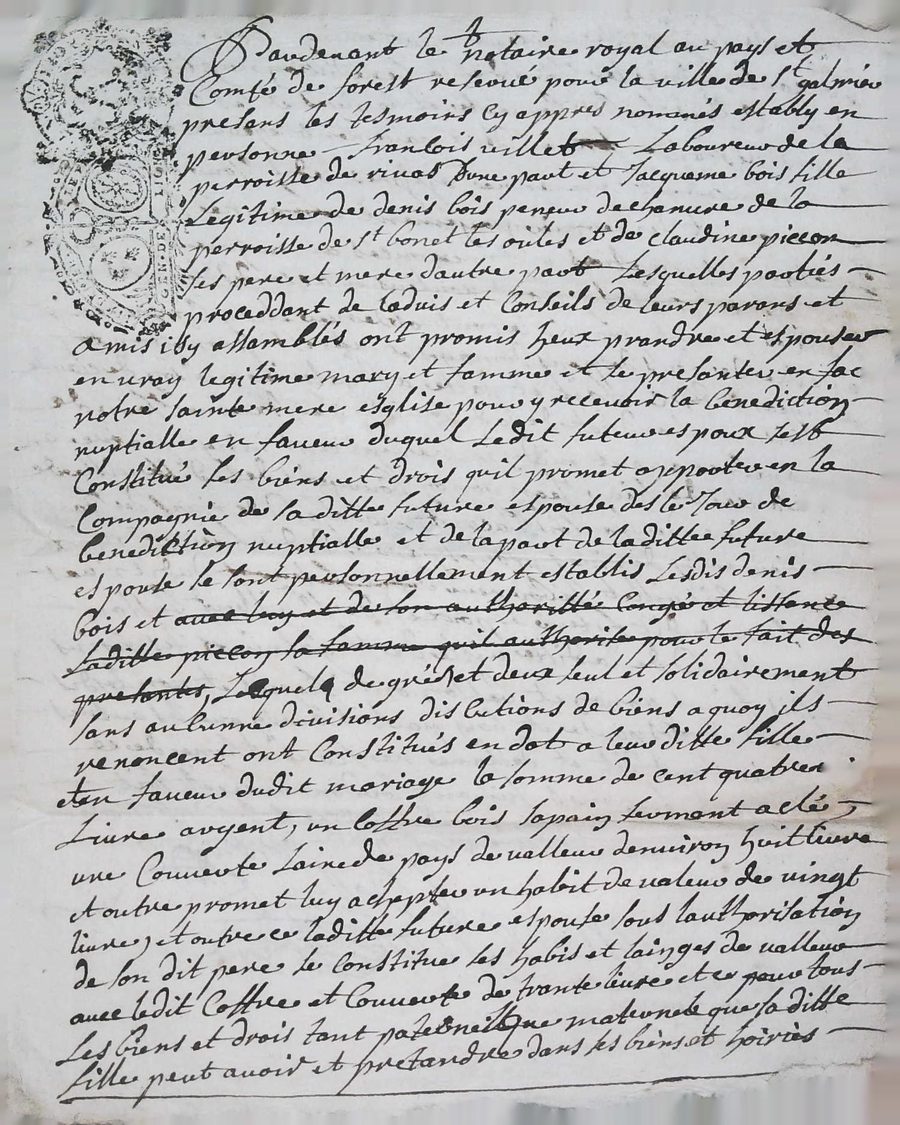 Pardevant le notaire royal au pays et
Comté de forest reservé pour la ville de St galmier
presans les tesmoins cy appres nommés estably en
personne francois villet Laboureur de la
perroisse de rivas dune part et Jacqueme bois fille
Legitime de denis bois peneur de chanvre de la
perroisse de St bonet les oules et de claudine piccon
ses pere et mere dautre part Lesquelles partiés
proceddant de ladvis et Conseils de leurs parans et
amis icy assamblés ont promis heux prandre et espouser
en vray legitime mary et famme et se presanter en fac
notre sainte mere esglise pour y recevoir la benediction
nuptialle en faveur duquel Ledit futeur espoux sest
Constitué ses biens et drois quil promet apporter en la
Compagnie de sa ditte future espouse des le Jour de
benediction nuptialle et de la part de la ditte future
espouse se sont personnellement establis Lesdis denis
bois et avec luy et de son authoritté Congé et lissance
Laditte piccon sa famme quil authorise pour le fait des
presantes, Lequel de gré et deux seul et solidairement
sans aulcunne divisions discutions de biens a quoy ils
renoncent ont Constitués en dot a leur ditte fille
et en faveur dudit mariage la somme de cent quatre
Livre argent, un Coffre bois sapain fermant a clé,
une Couverte Laine de pays de valleur denviron huit livre
et outre promet luy achepter un habit de valeur de vingt
livre, et outre ce laditte future espouse sous lauthorisation
de son dit pere se Constitue ses habis et lainges de valleur
avec ledit Coffre et Couverte de trante livre et ce pour tous
Les biens et drois tant paterneils que maternels que sa ditte
fille peut avoir et pretandre dans ses biens et hoiriés